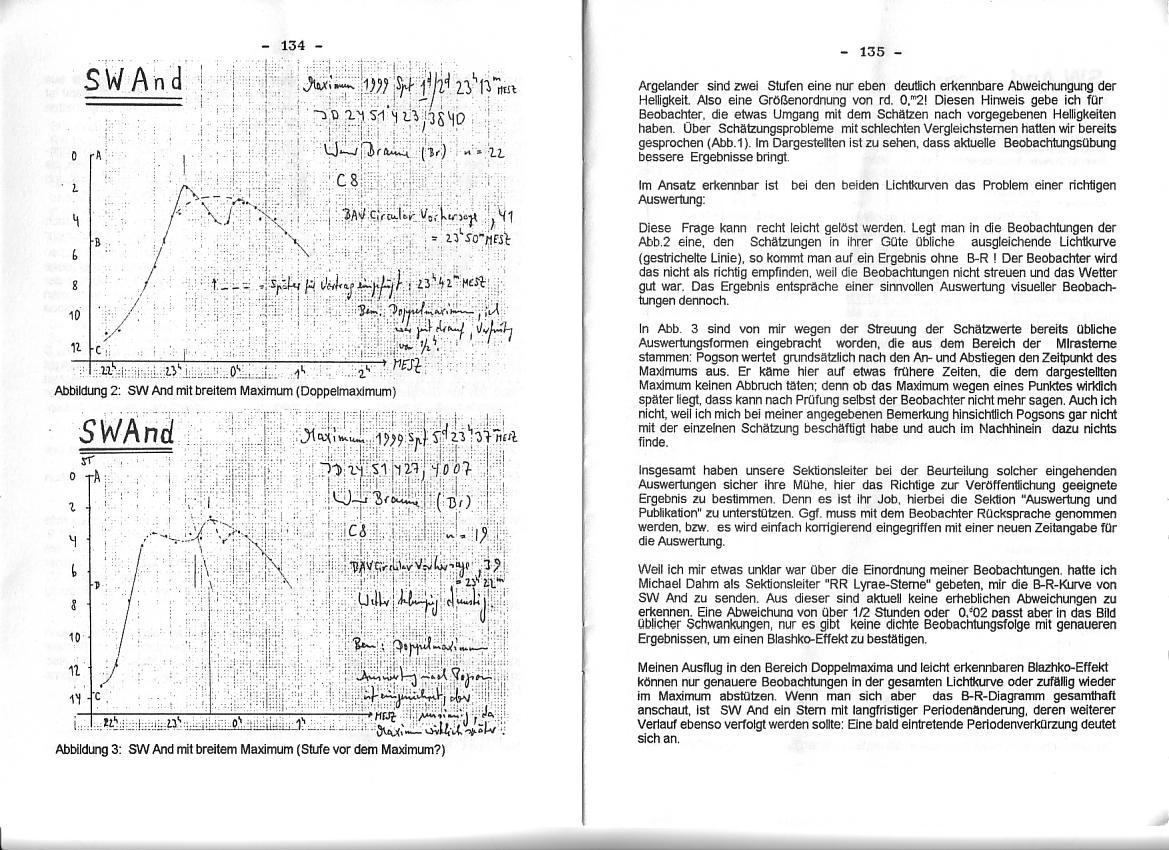 - 134 -
SW And
Maximum 1999 Spt 1d/2d 23h 13m MESZ
JD 2451423,3840
Braune (Br) n = 22
C8
BAV Circular Vorhersage ,41
= 23h50m MESZ
= später für Vortrag eingefügt: 23h42m MESZ
Bem: Doppelmaximum,
0
2
4
6
8
10
12
A
B
C
22h
23h
0h
1h
2h
MESZ
Abbildung 2: SW And mit breitem Maximum (Doppelmaximum)
SWAnd
Maximum 1999 Spt 5d 23h 37m MESZ
ST
JD 2451427,4007
Braune (Br)
C8 n = 19
BAV Circular Vorhersage ,39
= 23h22m
Wetter dunstig.
Bem: Doppelmaximum
Auswertung nach Pogson
ist eingezeichnet, aber
da
Maximum wirklich später.
0
2
4
6
8
10
12
14
A
D
C
22h
23h
0h
1h
MESZ
Abbildung 3: SW And mit breitem Maximum (Stufe vor dem Maximum?)
- 135 -
Argelander sind zwei Stufen eine nur eben deutlich erkennbare Abweichung der
Helligkeit. Also eine Größenordnung von rd. 0,m2! Diesen Hinweis gebe ich für
Beobachter, die etwas Umgang mit dem Schätzen nach vorgegebenen Helligkeiten
haben. Über Schätzungsprobleme mit schlechten Vergleichsternen hatten wir bereits
gesprochen (Abb.1). Im Dargestellten ist zu sehen, dass aktuelle Beobachtungsübung
bessere Ergebnisse bringt.
Im Ansatz erkennbar ist bei den beiden Lichtkurven das Problem einer richtigen
Auswertung:
Diese Frage kann recht leicht gelöst werden. Legt man in die Beobachtungen der
Abb.2 eine, den Schätzungen in ihrer Güte übliche ausgleichende Lichtkurve
(gestrichelte Linie), so kommt man auf ein Ergebnis ohne B-R ! Der Beobachter wird
das nicht als richtig empfinden, weil die Beobachtungen nicht streuen und das Wetter
gut war. Das Ergebnis entspräche einer sinnvollen Auswertung visueller Beobach-
tungen dennoch.
In Abb. 3 sind von mir wegen der Streuung der Schätzwerte bereits übliche
Auswertungsformen eingebracht worden, die aus dem Bereich der MIrasterne
stammen: Pogson wertet grundsätzlich nach den An- und Abstiegen den Zeitpunkt des
Maximums aus. Er käme hier auf etwas frühere Zeiten, die dem dargestellten
Maximum keinen Abbruch täten; denn ob das Maximum wegen eines Punktes wirklich
später liegt, dass kann nach Prüfung selbst der Beobachter nicht mehr sagen. Auch ich
nicht, weil ich mich bei meiner angegebenen Bemerkung hinsichtlich Pogsons gar nicht
mit der einzelnen Schätzung beschäftigt habe und auch im Nachhinein dazu nichts
finde.
Insgesamt haben unsere Sektionsleiter bei der Beurteilung solcher eingehenden
Auswertungen sicher ihre Mühe, hier das Richtige zur Veröffentlichung geeignete
Ergebnis zu bestimmen. Denn es ist ihr Job, hierbei die Sektion "Auswertung und
Publikation" zu unterstützen. Ggf. muss mit dem Beobachter Rücksprache genommen
werden, bzw. es wird einfach korrigierend eingegriffen mit einer neuen Zeitangabe für
die Auswertung.
Weil ich mir etwas unklar war über die Einordnung meiner Beobachtungen. hatte ich
Michael Dahm als Sektionsleiter "RR Lyrae-Sterne" gebeten, mir die B-R-Kurve von
SW And zu senden. Aus dieser sind aktuell keine erheblichen Abweichungen zu
erkennen. Eine Abweichung von über 1/2 Stunden oder 0,d02 passt aber in das Bild
üblicher Schwankungen, nur es gibt keine dichte Beobachtungsfolge mit genaueren
Ergebnissen, um einen Blashko-Effekt zu bestätigen.
Meinen Ausflug in den Bereich Doppelmaxima und leicht erkennbaren Blazhko-Effekt
können nur genauere Beobachtungen in der gesamten Lichtkurve oder zufällig wieder
im Maximum abstützen. Wenn man sich aber das B-R-Diagramm gesamthaft
anschaut, ist SW And ein Stern mit langfristiger Periodenänderung, deren weiterer
Verlauf ebenso verfolgt werden sollte: Eine bald eintretende Periodenverkürzung deutet
sich an.